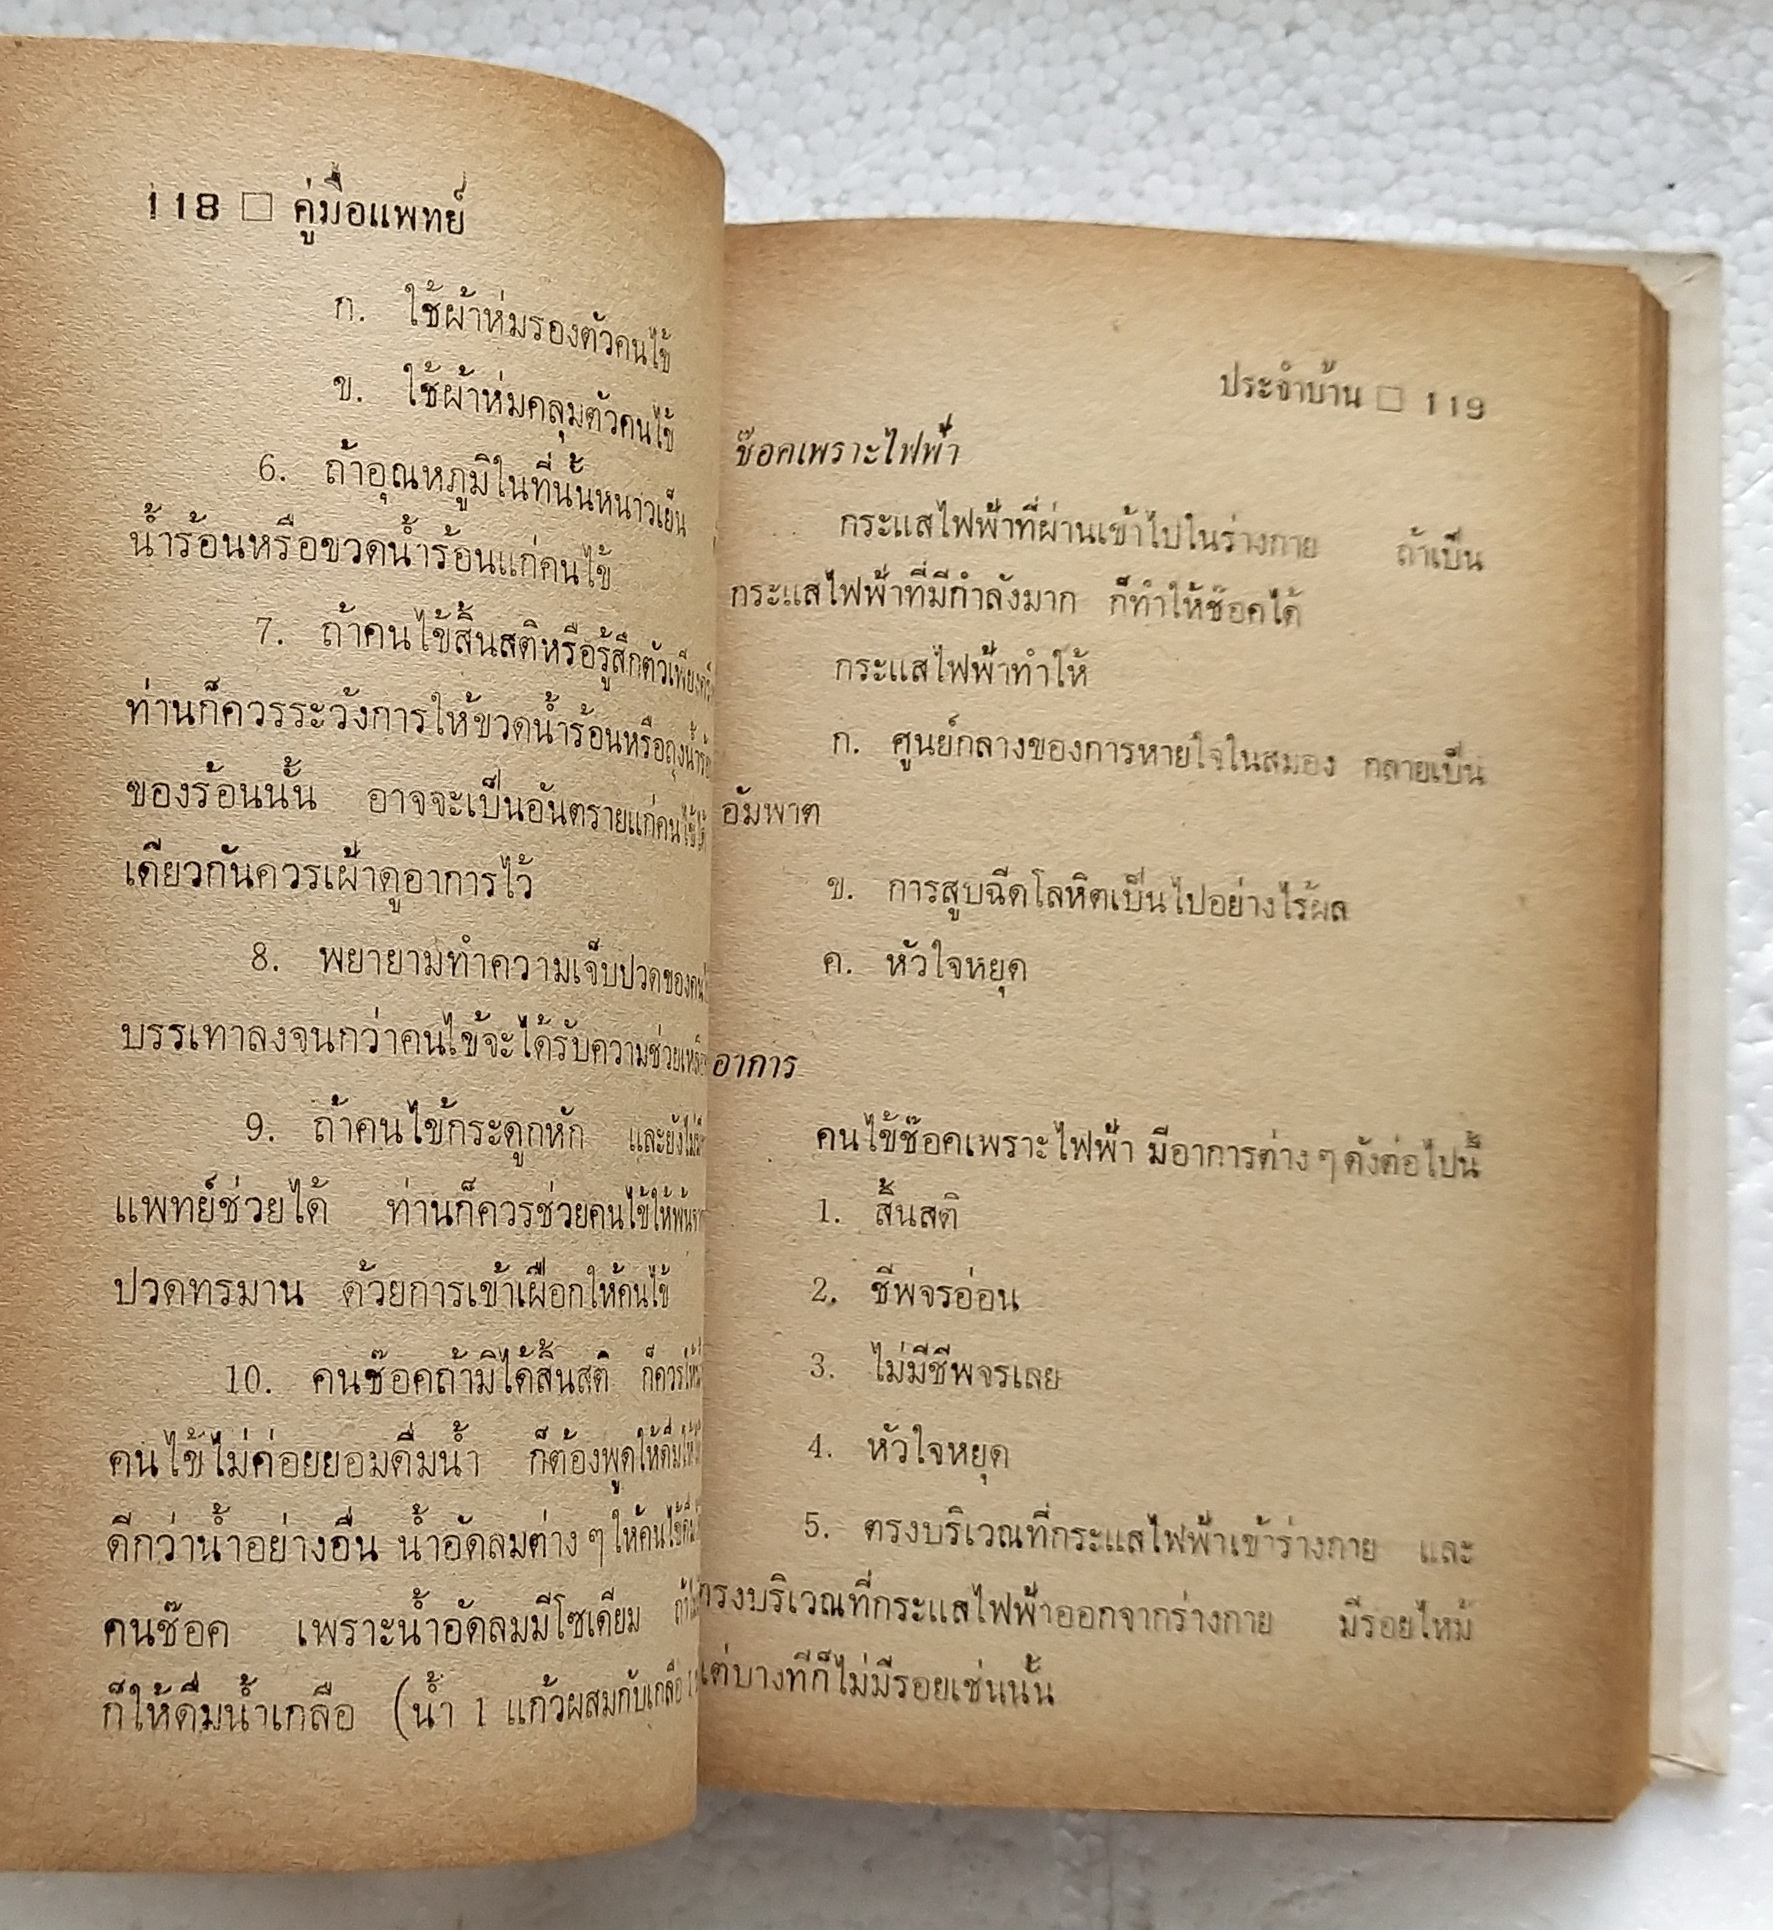 118 □ คู่มือแพทย์
ก. ใช้ผ้าห่มรองตัวคนไข้
ข. ใช้ผ้าห่มคลุมตัวคนไข้
6. ถ้าอุณหภูมิในที่นั้นหนาวเย็น
น้ำร้อนหรือขวดน้ำร้อนแก่คนไข้
7. ถ้าคนไข้สิ้นสติหรือรู้สึกตัวเพียง
ท่านก็ควรระวังการให้ขวดน้ำร้อนหรือถุง
ของร้อนนั้น อาจจะเป็นอันตรายแก่คนไข้ได้
เดียวกันควรเฝ้าดูอาการไว้
8. พยายามทำความเจ็บปวดของ
บรรเทาลงจนกว่าคนไข้จะได้รับความ
9. ถ้าคนไข้กระดูกหัก และยัง
แพทย์ช่วยได้ ท่านก็ควรช่วยคนไข้ให้พ้น
ปวดทรมาน ด้วยการเข้าเฝือกให้คนไข้
10. คนช๊อคถ้ามิได้สิ้นสติ ก็ควร
คนไข้ไม่ค่อยยอมดื่มน้ำ ก็ต้องพูดให้ดื่ม
ดีกว่าน้ำอย่างอื่น น้ำอัดลมต่าง ๆ ให้คนไข้
คนช๊อค เพราะน้ำอัดลมมีโซเดียม
ก็ให้ดื่มน้ำเกลือ (น้ำ 1 แก้วผสมกับเกลือ
ประจำบ้าน □ 119
ช๊อคเพราะไฟฟ้า
กระแสไฟฟ้าที่ผ่านเข้าไปในร่างกาย ถ้าเป็น
กระแสไฟฟ้าที่มีกำลังมาก ก็ทำให้ช๊อคได้
กระแสไฟฟ้าทำให้
ก. ศูนย์กลางของการหายใจในสมอง กลายเป็น
อัมพาต
ข. การสูบฉีดโลหิตเป็นไปอย่างไร้ผล
ค. หัวใจหยุด
อาการ
คนไข้ช๊อคเพราะไฟฟ้า มีอาการต่าง ๆ ดังต่อไปนี้
1. สิ้นสติ
2. ชีพจรอ่อน
3. ไม่มีชีพจรเลย
4. หัวใจหยุด
5. ตรงบริเวณที่กระแสไฟฟ้าเข้าร่างกาย และ
ตรงบริเวณที่กระแสไฟฟ้าออกจากร่างกาย มีรอยไหม้
แต่บางทีก็ไม่มีรอยเช่นนั้น